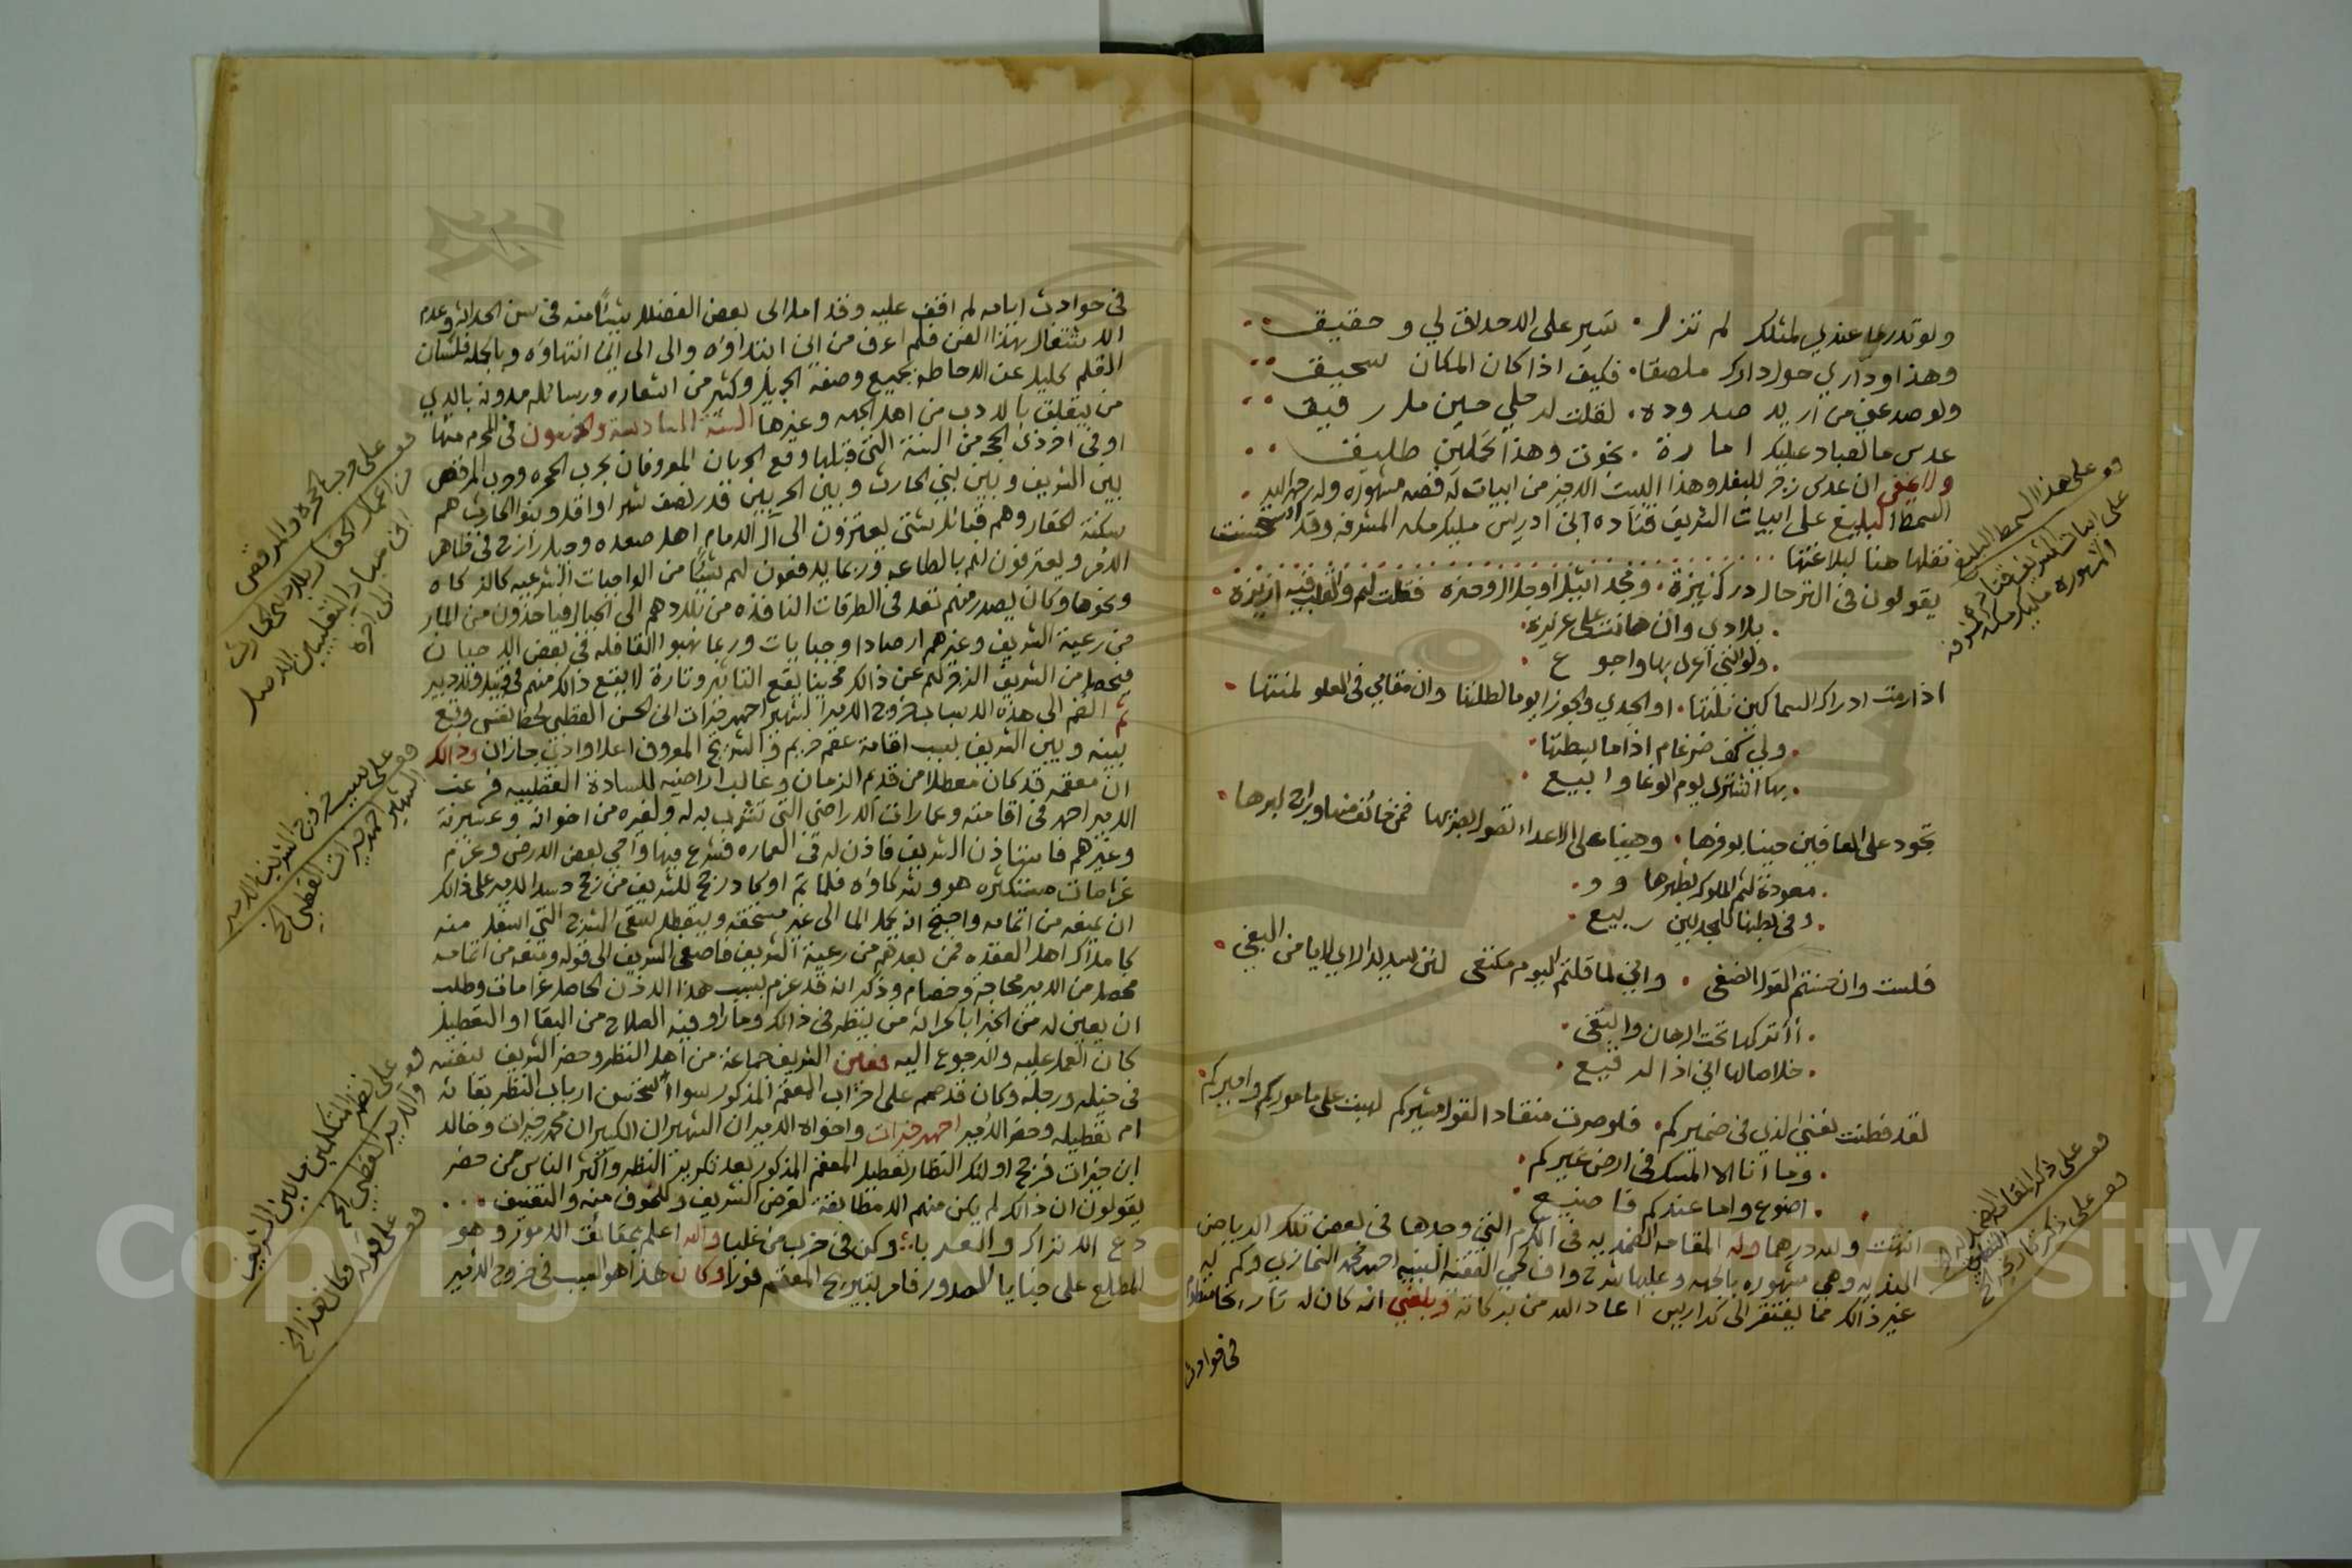 ولو تدر ما عندي لمثلك لم تزل ٠ تسير على الاحداق لي و حقيق ٠٠
وهذا وداري حول دارك ملصقا ٠ فكيف اذا كان المكان سحيق ٠٠
ولو صد عني من اريد صدوده ٠ لقلت له خلي حين ما رفيق ٠٠
عدس ما لعباد عليك امارة ٠ نجوت وهذا تحملين طليق ٠٠
ولا يخفى ان عدس زجر للبغل وهذا البيت الاخير من ابيات له قصه مشهوره وله رحمه الله ٠
السمط البليغ على ابيات الشريف قتاده ابن ادريس مليك مكه المشرفه وقد استحسنت
نقلها هنا لبلاغتها
يقولون في الترحال درك نبيزة ٠ ونجد اثيل او جلال وحزه فقلت لهم والقلب فيه ازيزة ٠
٠ بلادي وان هانت علي عزيزة ٠
٠ ولو انني اعرى بها واجوع ٠
اذا رمت ادراك السماكين نلتها ٠ او الجدي والجوزا يوما لطلتها وان مقامي في العلو لمنتها ٠
٠ ولي كف ضرغام اذا ما بسطتها ٠
٠ بها اشترى يوم الوغا وابيع ٠
تجود على العافين حينا بوفرها ٠ وحينا على الاعداء تصول بضرها فمن خائف منها وراج لبرها ٠
٠ معودة لثم الملوك لظهرها ٠
٠ وفي بطنها للمجدبين ربيع ٠
فلست وان حسنتم القول اصغي ٠ واني لما قلتم اليوم مكتفي لئن سيد الاباي من البغي ٠
٠ أأتركها تحت الرهان وابتغي ٠
٠ خلاصا لها اني اذا لرقيع ٠
لقد فطنت نفسي الذي في ضميركم ٠ فلو صرت منقاد القول مشيركم لهنت على ماموركم واميركم ٠
٠ وما انا الا المسك في ارض غيركم ٠
٠ اضوع واما عندكم فاضيع ٠
انتهت ولله درهما وله المقامه الضمديه في الكرم التي وحدها في بعض تلك الرياض
النديه وهي مشهوره بالجهه وعليها شرح واف لحي الفقيه النبيه احمد محمد النمازي وكم له
غير ذالك مما يفتقر الى كراريس اعاد الله من بركاته وبلغني انه كان له تاريخا منظوما
في حوادث
قو على هذا السمط البليغ
على ابيات الشريف قتاده
المشهوره مليك مكه المشرفه
قو على ذكر المقامه الضمديه الخ
قو على ذكر تاريخ الخ
في حوادث ايامه لم اقف عليه وقد املا الى بعض الفضلا شيئا منه في سن الحداثه وعدم
الاشتغال بهذا الفن فلم اعرف من اين ابتداؤه والى اين انتهاؤه وبالجمله فلسان
القلم كليل عن الاحاطه بجميع وصفه الجميل وكثير من اشعاره ورسائله مدونه بايدي
من يتعلق بالادب من اهل الجهه وغيرها السنة السادسه والاربعون في المحرم منها
او في اخر ذي الحجه من السنة التي قبلها وقع الحربان المعروفان بحرب الحجره وحرب المرقص
بين الشريف وبين بني الحارث وبين الحربين قدر نصف شهر او اقل وبنو الحارث هم
سكنة الحقار وهم قبائل شتى يعتزون الى آل الامام اهل صعده وجبل رازح في ظاهر
الامر ويعترفون لهم بالطاعه وربما يدفعون لهم شيئا من الواجبات الشرعيه كالزكاه
ونحوها وكان يصدر منهم تعد في الطرقات النافذه من بلادهم الى الجبال فياخذون من المار
من رعية الشريف وغيرهم ارصادا وجبايات وربما نهبوا القافله في بعض الاحيان
فيحصل من الشريف الزجر لهم عن ذالك فحينا يقع التاثير وتارة لا يقع ذالك منهم في قبيل ولا دبير
ثم انضم الى هذه الاسباب خروج الامير الشهير احمد خيرات ابن الحسن القطبي لحظ نفس وقع
بينه وبين الشريف بسبب اقامة عقم خريم الشريح المعروف اعلا وادي جازان وذالك
ان معقمه قد كان معطلا من قديم الزمان وغالب اراضيه للسادة القطبيه فرغب
الامير احمد في اقامته وعمارات الاراضي التي تشرب به له ولغيره من اخوانه وعشيرته
وغيرهم فاستاذن الشريف فاذن له في العماره فشرع فيها واحيى بعض الارض وغرم
غرامات مستكثره هو وشركاؤه فلما تم او كاد رجح للشريف من رجح وسد الامير على ذالك
ان يمنعه من اتمامه واحتج انه يحمل الما الى غير مستحقه ويتعطل لسقي الشرج التي اسفل منه
كاملاك اهل العقده فمن بعدهم من رعية الشريف فاصغى الشريف الى قوله ومنعه من اتمامه
فحصل من الامير محاجة وخصام وذكر انه قد غرم بسبب هذا الاذن الحاصل غرامات وطلب
ان يعين له من الخبرا بالحراثه من ينظر في ذالك وما راو فيه الصلاح من البقا او التعطيل
كان العمل عليه والرجوع اليه فعين الشريف جماعة من اهل النظر وحضر الشريف بنفسه
في خيله ورجله وكان قد صمم على اخراب المعقم المذكور سوا استحسن ارباب النظر بقائه
ام تعطيله وحضر الامير احمد خيرات واخواه الاميران الشهيران الكبيران محمد خيرات وخالد
ابن خيرات فرجح اولئك النظار تعطيل المعقم المذكور بعد تكرير النظر واكثر الناس ممن حضر
يقولون ان ذالك لم يكن منهم الا مطابقة لغرض الشريف وللخوف منه والتعنيف ٠٠٠
دع الانزاك والعربا ٠ وكن في حزب من غلبا والله اعلم بحقائق الامور وهو
المطلع على خبايا الصدور فامر بتسريح المعقم فورا وكان هذا هو السبب في خروج الامير
قو على حرب الحجره والمرقص
قو على سبب خروج الشريف الامير
الشهير احمد خيرات القطبي الخ
قو على نظر المتكلمين ما بين الشريف
والامير القطبي الخ
قو على قوله وكان هذا الخ
Copyright © King Saud University